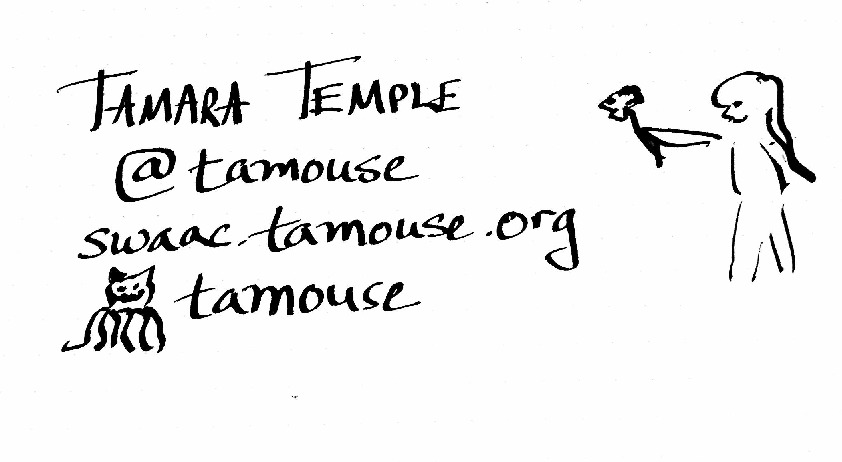 TAMARA TEMPLE
@tamouse
swaac.tamouse.org
tamouse